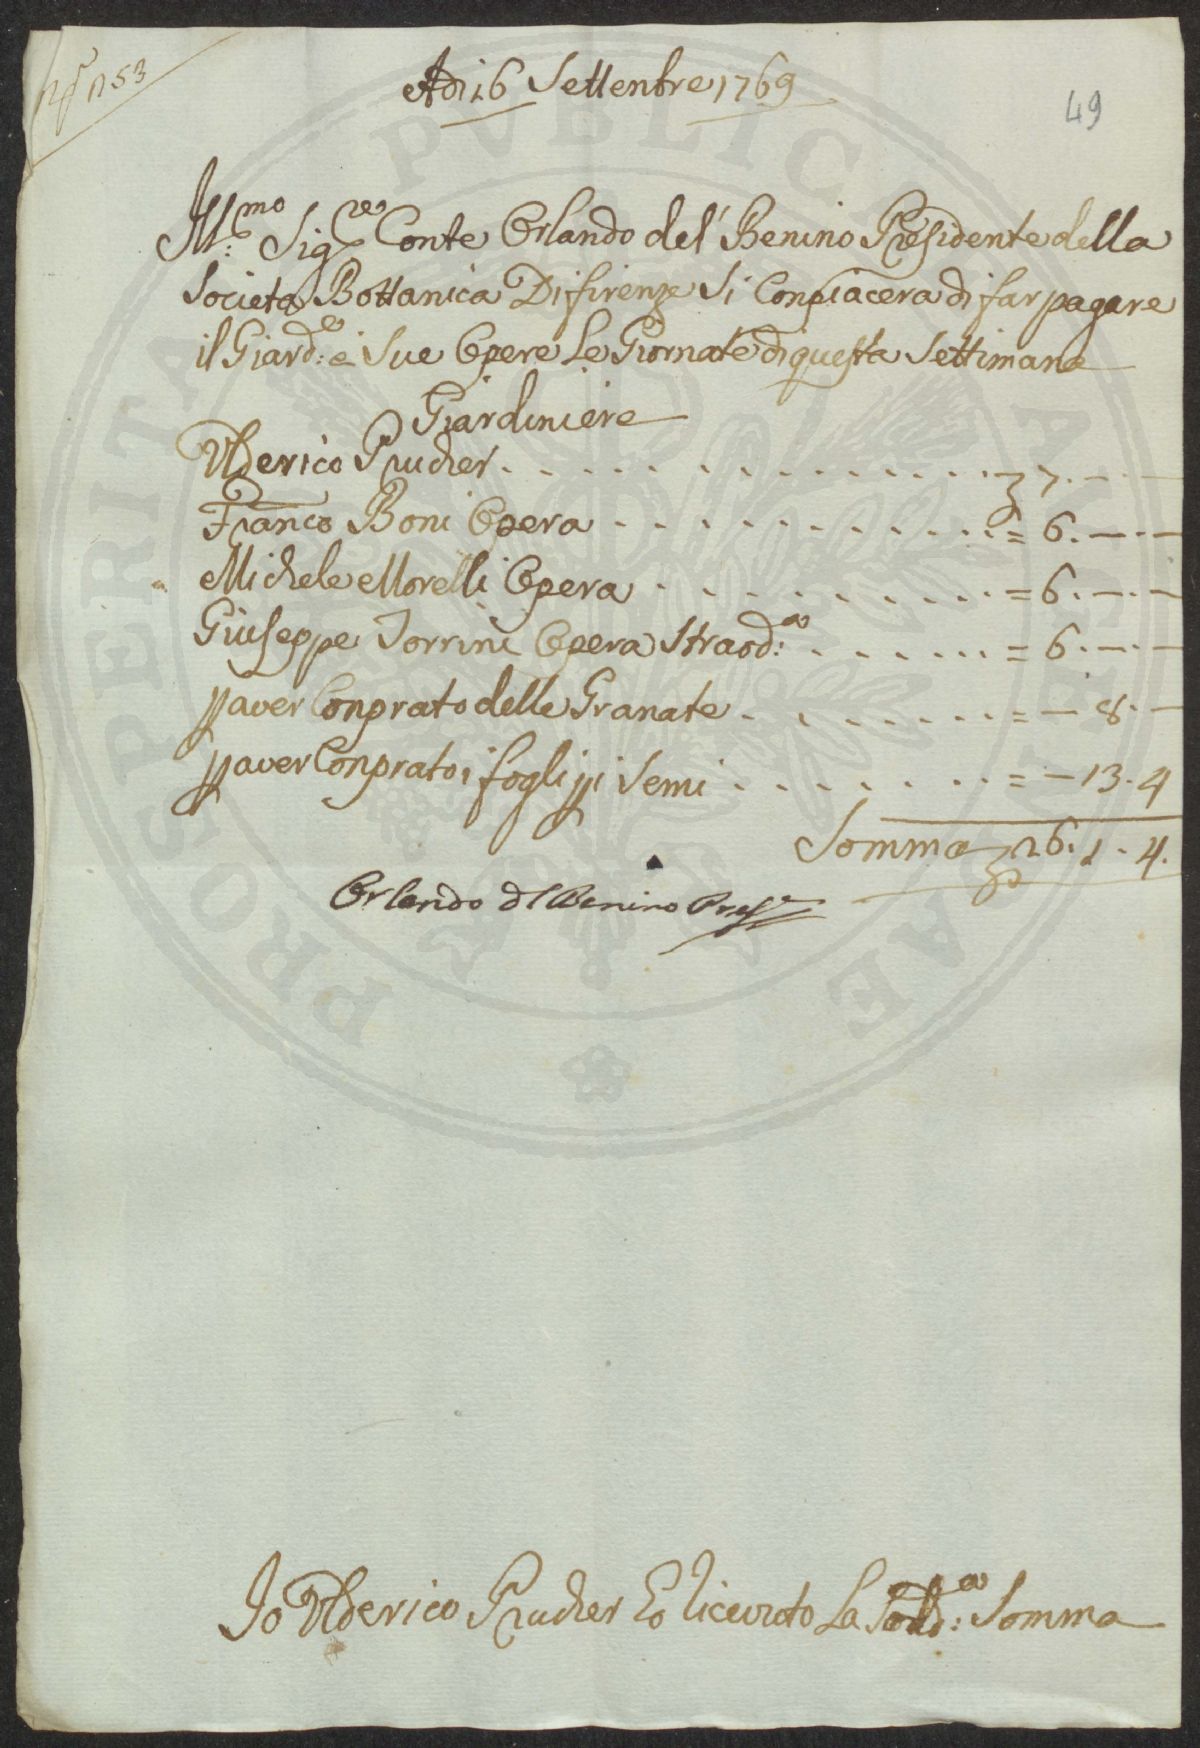 N° 1153
Adi 16 Settenbre 1769
49
Ill:mo Sig:re Conte Orlando del' Benino Presidente della
Societa Bottanica Di firenze Si Conpiacera di far pagare
il Giard:e e Sue Opere Le Giornate di questa Settimana
Giardiniere
Ulderico Prucher . . . . . . . . . . . . £ 7. — . —
Franco Boni Opera . . . . . . . . . . . = 6. — . —
Michele Morelli Opera . . . . . . . . . . = 6. — . —
Giuseppe Torrini Opera Straord:a . . . . . . = 6. — . —
p aver Conprato delle Granate . . . . . . . . = — 8. —
p aver Conprato i fogli p i Semi . . . . . . . = — 13. 4
Somma £ 26. 1. 4.
Orlando del Benino Pres.e
Io Ulderico Prucher Eo Riceuuto La Sod:a Somma
PROSPERITATI PUBLICAE AUGENDAE